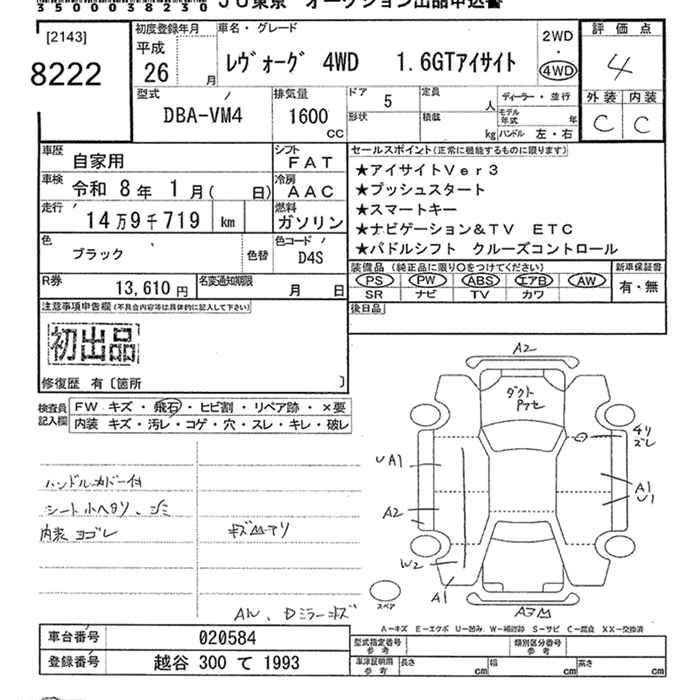 35000038230 JU東京 オークション出品申込書
[2143]
8222
初度登録年月
平成
26 年 月
車名・グレード
レヴォーグ 4WD 1.6GTアイサイト
2WD
・
4WD
評価点
4
外装 内装
C C
型式
DBA-VM4
排気量
1600
cc
ドア
5
形状
定員
人
積載
kg
ディーラー・並行
モデル年式 年
ハンドル 左・右
車歴
自家用
シフト
FAT
車検
令和 8年 1月( 日)
冷房
AAC
走行
14万9千719 km
燃料
ガソリン
色
ブラック
色替
色コード
D4S
R券
13,610円
名変通知期限
月 日
セールスポイント(正常に機能するものに限ります)
★アイサイトVer3
★プッシュスタート
★スマートキー
★ナビゲーション&TV ETC
★パドルシフト クルーズコントロール
装備品 (純正品に限り○をつけてください)
新車保証書
PS PW ABS エアB AW
SR ナビ TV カワ
有・無
後日品
注意事項申告欄(不具合内容等は具体的に記入して下さい)
初出品
修復歴 有〔箇所 〕
検査員
記入欄
FW キズ・飛石・ヒビ割・リペア跡・×要
内装 キズ・汚レ・コゲ・穴・スレ・キレ・破レ
シート小ヘタリ、シミ
内装 ヨゴレ
A2
ダクト
UA1
A2
W2
A1
A1
U1
スペア
AW、Dミラーキズ
A-キズ E-エクボ U-凹み W-補修跡 S-サビ C-腐食 XX-交換済
車台番号
020584
登録番号
越谷 300 て 1993
型式指定番号
参考
類別区分番号
参考
車庫証明用
参考
長さ cm
幅 cm
高さ cm